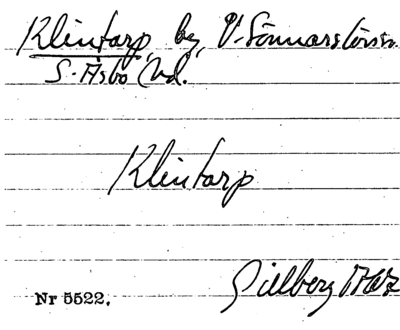 Klintarp, by, V. Sönnarslövs sn.
S. Åsbo hd.
Klintarp
Gillberg
Nr 5522.